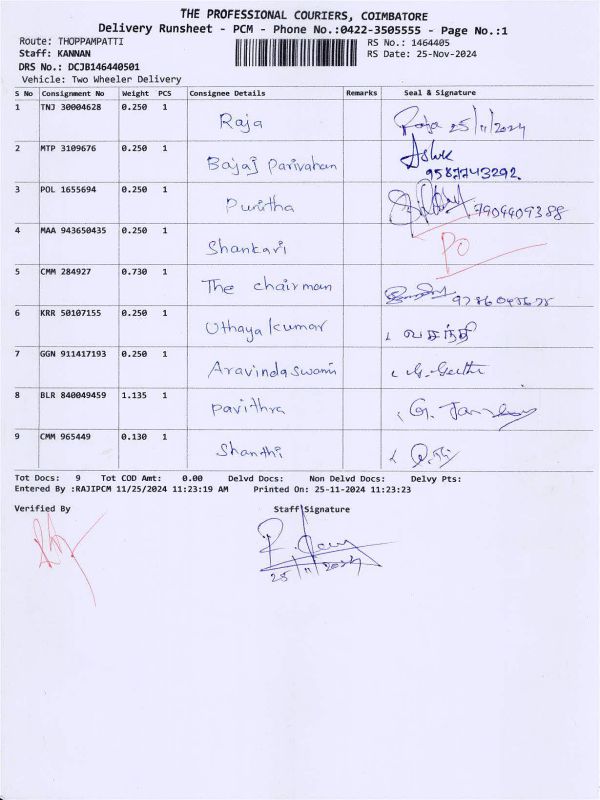 THE PROFESSIONAL COURIERS, COIMBATORE
Delivery Runsheet - PCM - Phone No.:0422-3505555 - Page No.:1
Route: THOPPAMPATTI
RS No.: 1464405
Staff: KANNAN
RS Date: 25-Nov-2024
DRS No.: DCJB146440501
Vehicle: Two Wheeler Delivery
S No Consignment No Weight PCS Consignee Details Remarks Seal & Signature
1 TNJ 30004628 0.250 1 Raja Raja 25/11/2024
2 MTP 3109676 0.250 1 Bajaj Parivahan
9587743292.
3 POL 1655694 0.250 1 Punitha 7904409388
4 MAA 943650435 0.250 1 Shankari PO
5 CMM 284927 0.730 1 The chairman
6 KRR 50107155 0.250 1 Uthaya kumar வசந்தி
7 GGN 911417193 0.250 1 Aravindaswami G. Geetha
8 BLR 840049459 1.135 1 Pavithra
9 CMM 965449 0.130 1 Shanthi
Tot Docs: 9 Tot COD Amt: 0.00 Delvd Docs: Non Delvd Docs: Delvy Pts:
Entered By :RAJIPCM 11/25/2024 11:23:19 AM Printed On: 25-11-2024 11:23:23
Verified By Staff Signature
25/11/2024